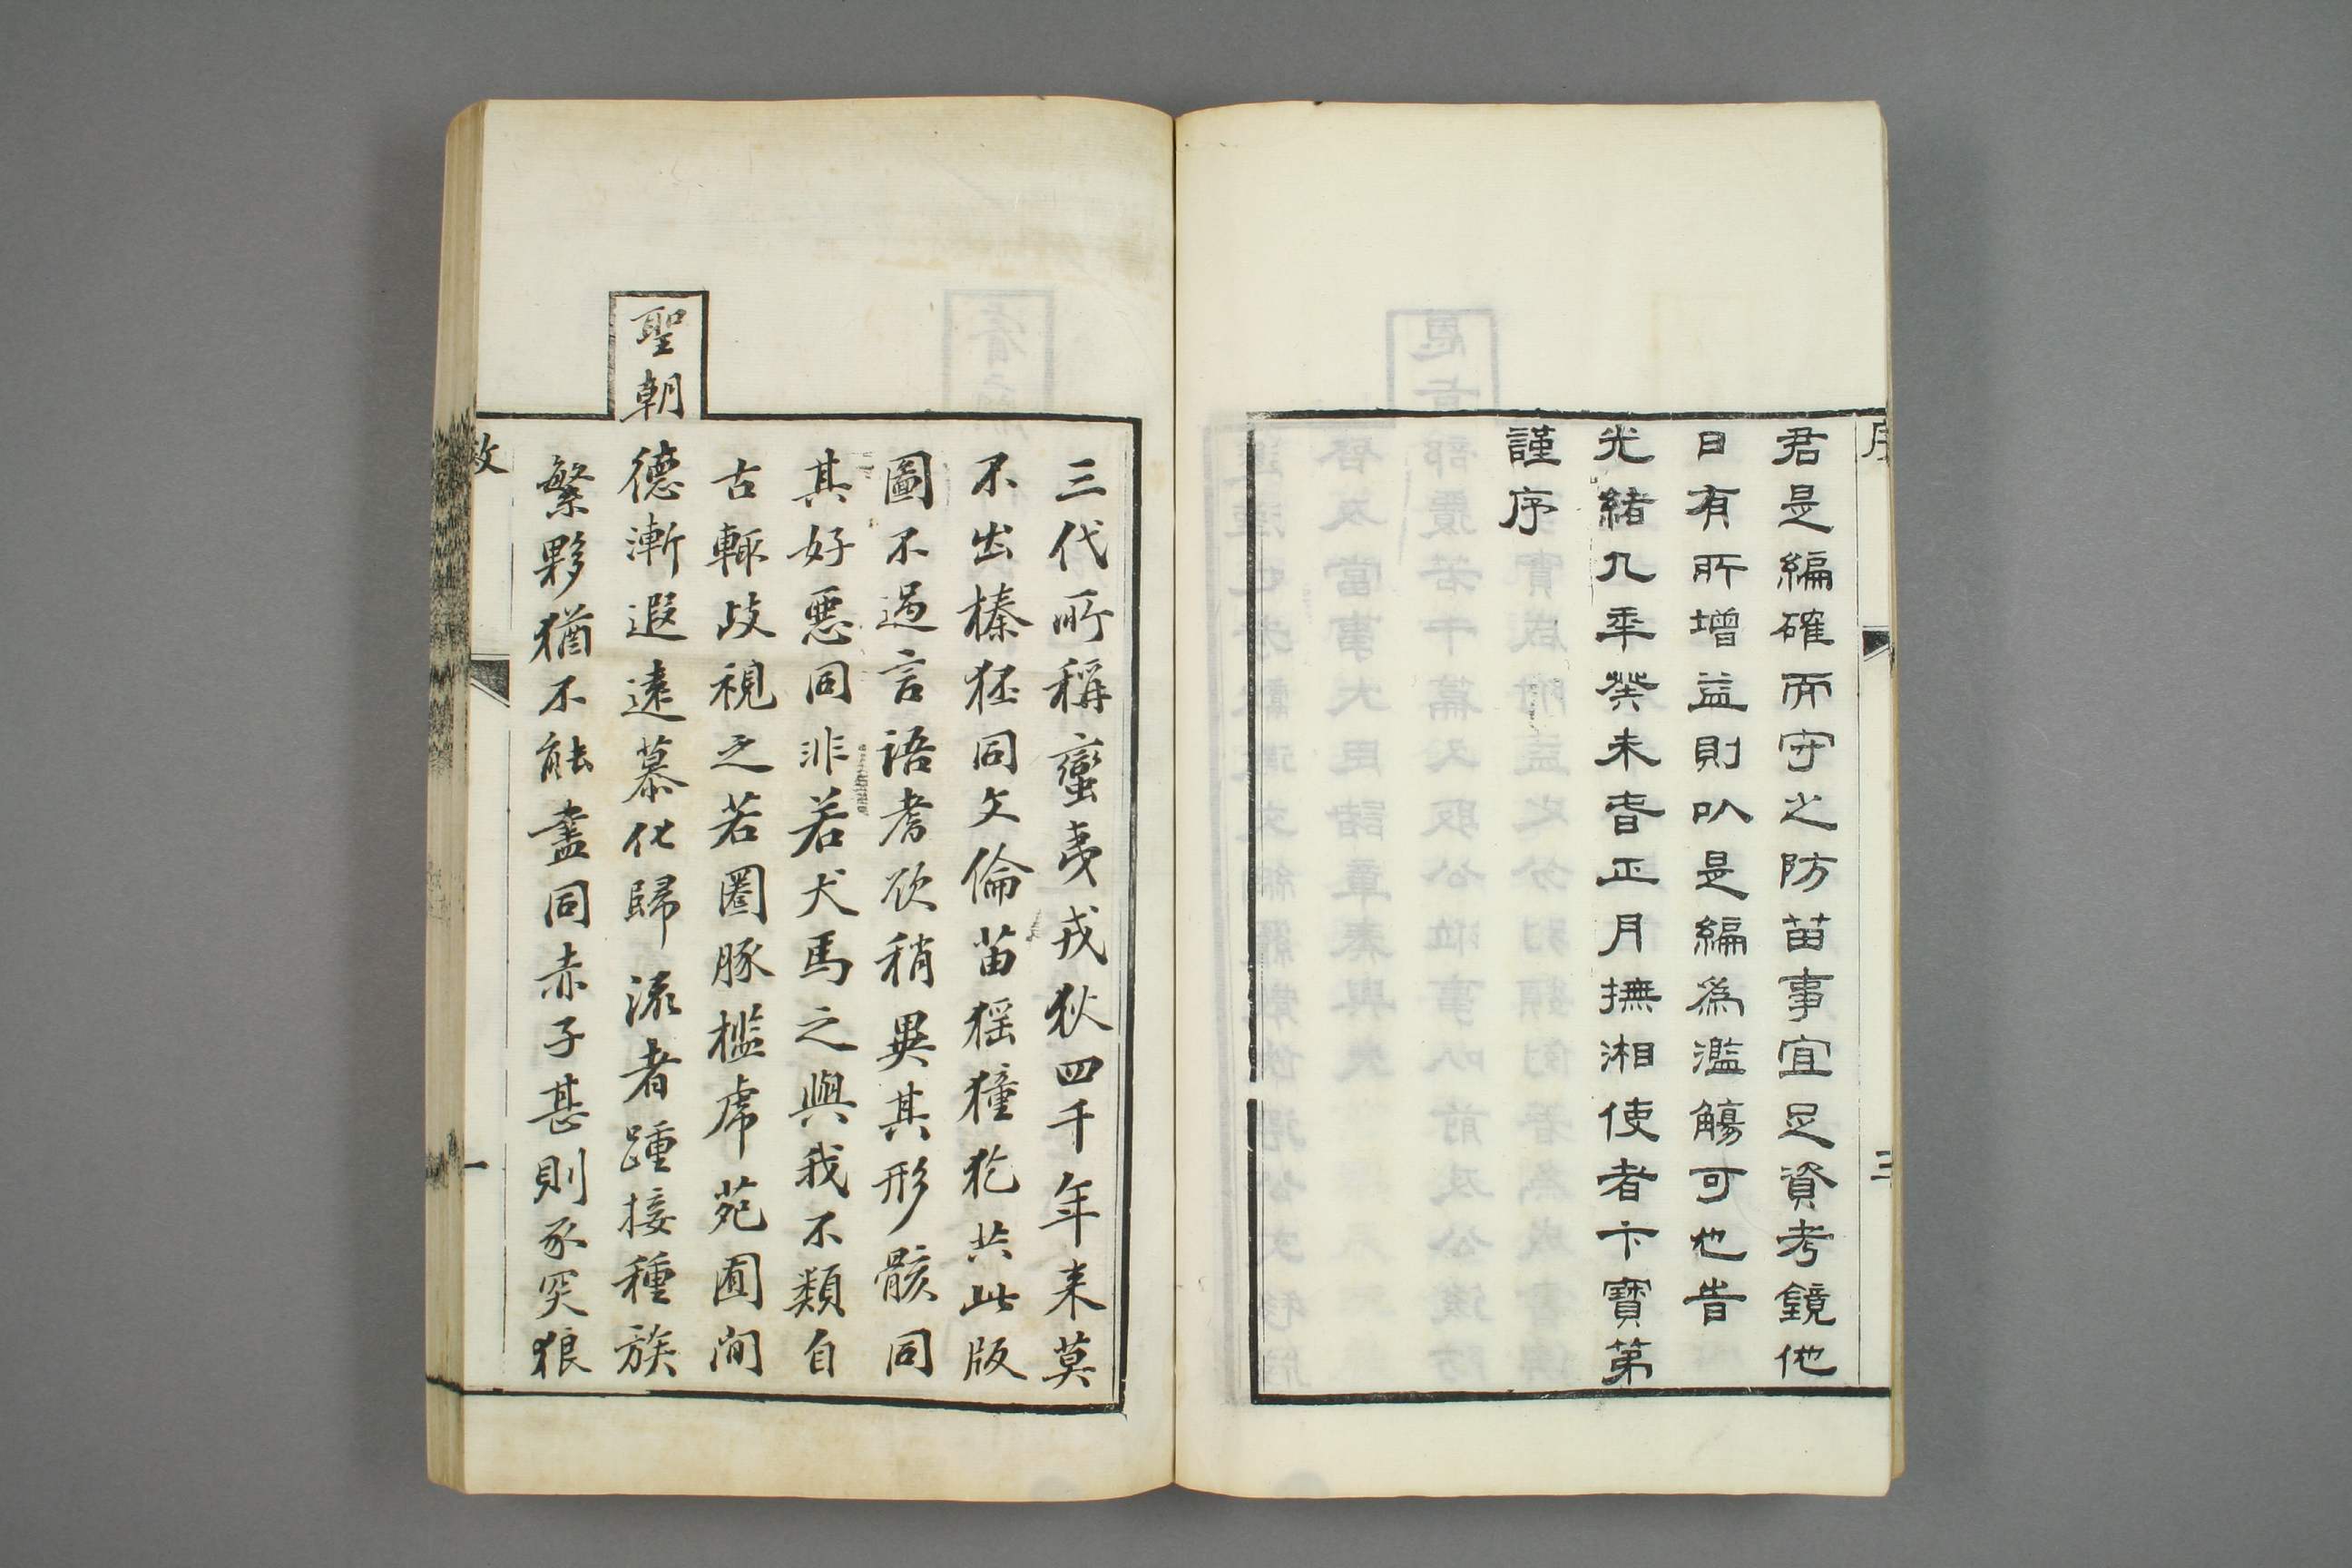 序
三
君是編確而守之防苗事宜足資考鏡他
日有所增益則以是編為濫觴可也旹
光緒九年癸未春正月撫湘使者卞寶第
謹序
三代所稱蠻夷戎狄四千年来莫
不出榛狉同文倫苗猺獞犵共此版
圖不過言語耆欲稍異其形骸同
其好惡同非若犬馬之與我不類自
古輒歧視之若圈豚檻虎苑囿間
聖朝德漸遐遠慕化歸流者踵接種族
繁夥猶不能盡同赤子甚則豕突狼
敘
一